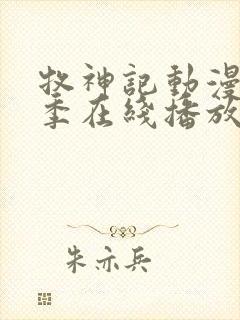 牧神記動漫
季在綫播放
朱亦兵